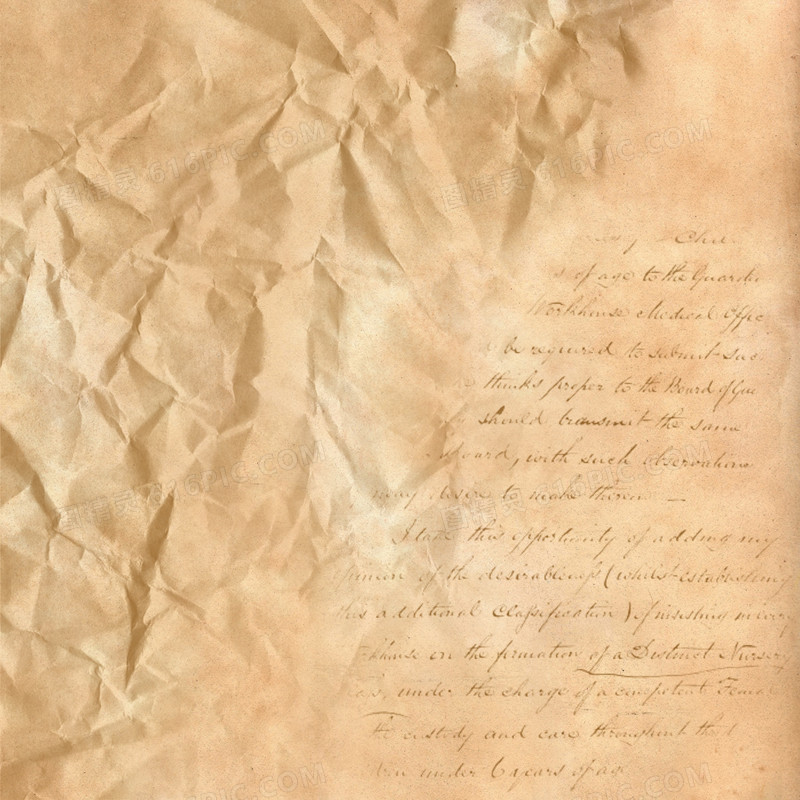 of age to the Guardi
Workhouse Medical Offic
be required to submit suc
thinks proper to the Board of Gua
should transmit the same
with such observations
may desire to make therein —
I take this opportunity of adding my
of the desirableness (whilst establishing
this additional Classification) of insisting in every
on the formation of a District Nursery
under the charge of a competent Female
the custody and care throughout the
under 6 years of age
图精灵 616PIC.COM